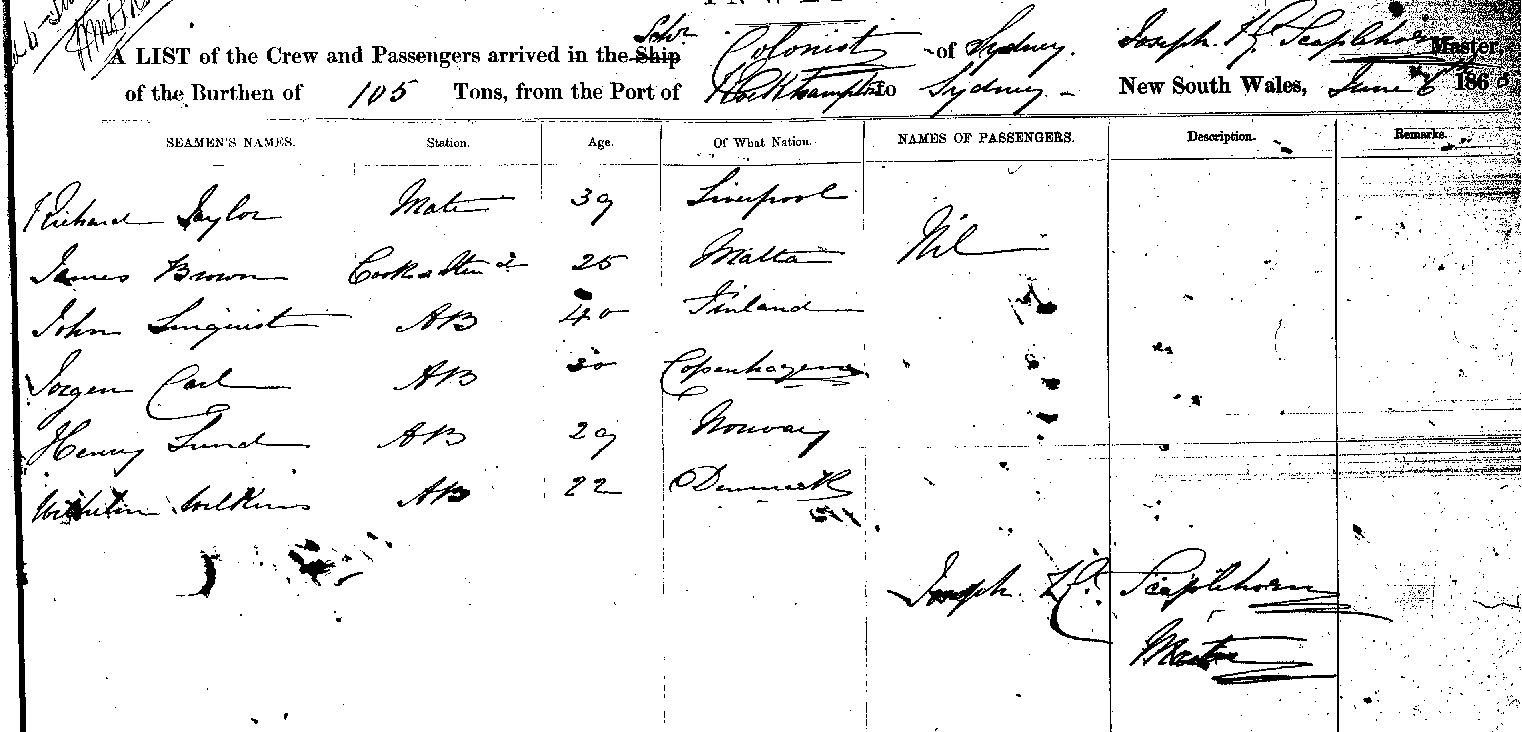 Schr
A LIST of the Crew and Passengers arrived in the Ship Colonist of Sydney. Joseph H Scaplehorn Master,
of the Burthen of 105 Tons, from the Port of Rockhampton to Sydney New South Wales, June 6 186
SEAMEN'S NAMES. Station. Age. Of What Nation. NAMES OF PASSENGERS. Description. Remarks.
Richard Taylor Mate 39 Liverpool
James Brown Cook & Stew d 25 Malta Nil
John Linquist AB 40 Finland
Jorgen Carl AB 30 Copenhagen
Henry Lund AB 29 Norway
Wilhelm Wilkins AB 22 Denmark
Joseph H. Scaplehorn
Master